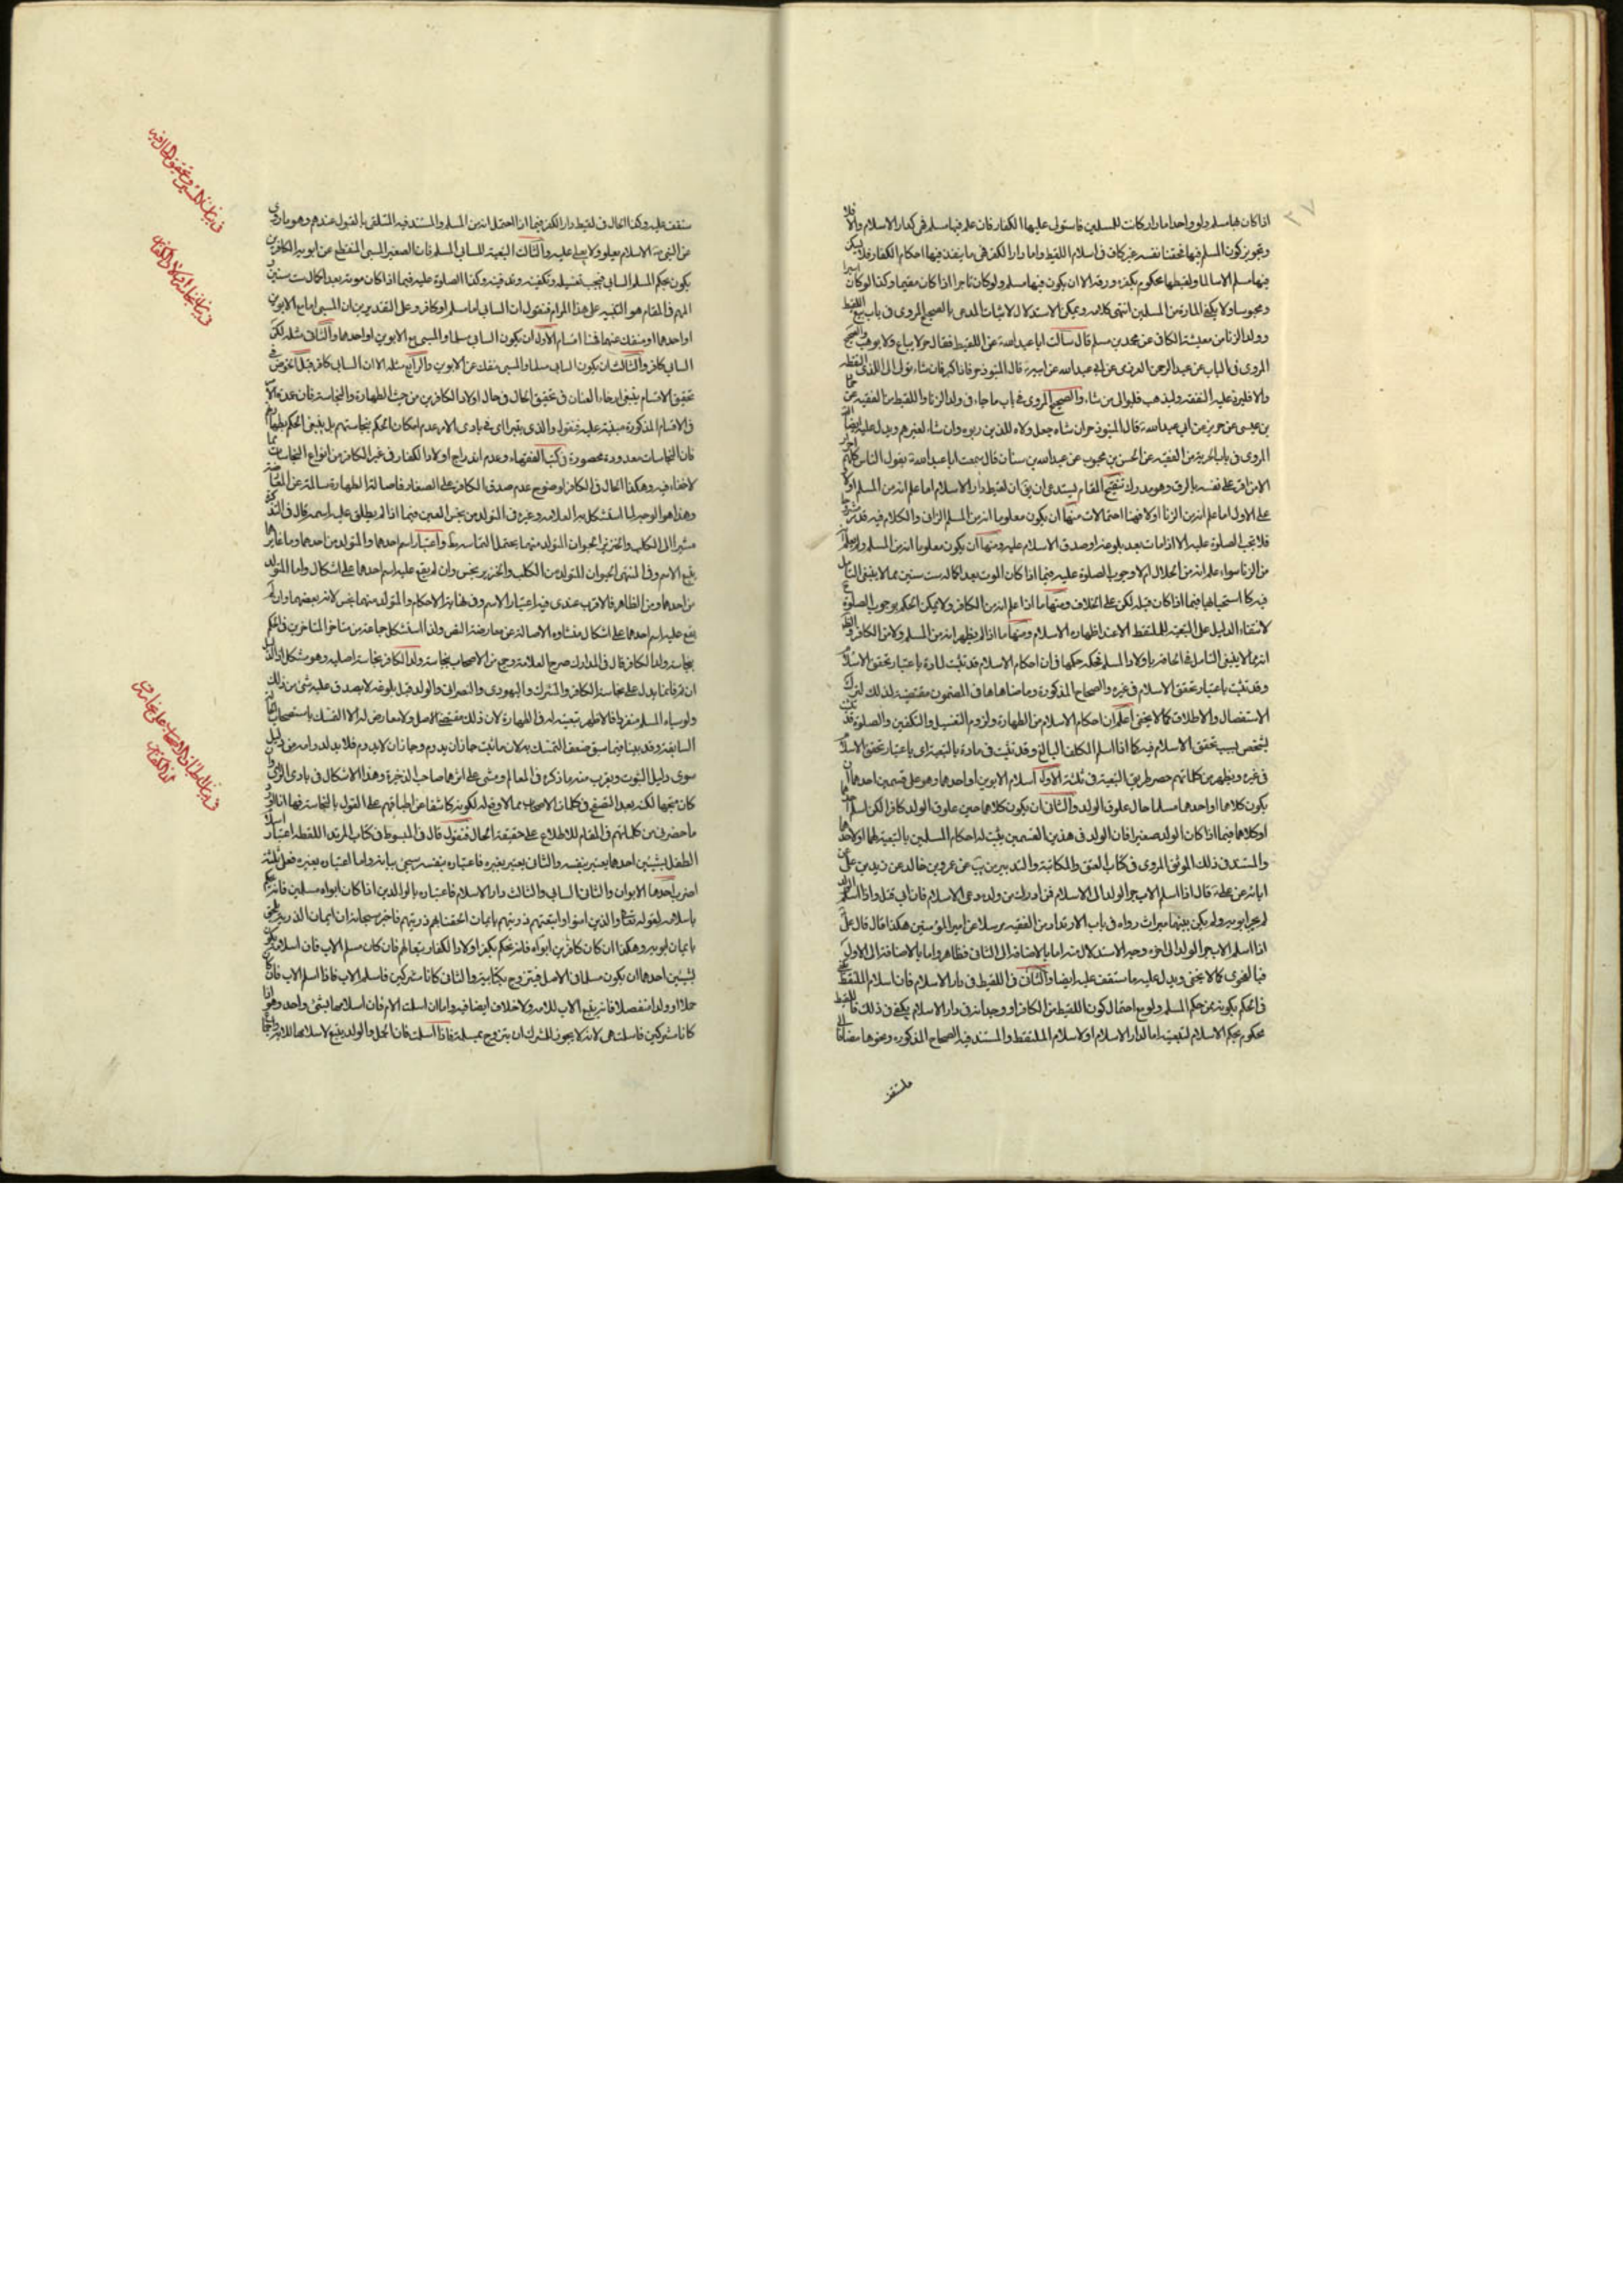 ٢٧
اذا كان فيها مسلم ولو واحدا اما دار كانت للمسلين فاستولى عليها الكفار فان علم فيها مسلم فهى كدار الاسلام والا فلا
وتجويز كون المسلم فيها مختفيا نفسه غير كاف فى اسلام اللقيط واما دار الكفر فهى ما ينفذ فيها احكام الكفار فلا يسكن
فيها مسلم الا مسالما ولقيطها محكوم بكفره ورقه الا ان يكون فيها مسلم ولو كان تاجرا اذا كان مقيما وكذا لو كان اسيرا
ومحبوسا ولا يكفى المارة من المسلمين انتهى كلامه ويمكن الاستدلال لاثبات المدعى بالصحيح المروى فى باب بيع اللقيط
وولد الزنا من معيشة الكافى عن محمد بن مسلم قال سألت ابا عبد الله عن اللقيط فقال حر لا يباع ولا يوهب والصحيح
المروى فى الباب عن عبد الرحمن العرزمى عن ابى عبد الله عن ابيه قال المنبوذ حر فاذا كبر فان شاء تولى الى الذى التقطه
والا فليرد عليه النفقة وليذهب فليوال من شاء والصحيح المروى فى باب ما جاء فى ولد الزنا واللقيط من الفقيه عن حماد
بن عيسى عن حريز عن ابى عبد الله قال المنبوذ حر ان شاء جعل ولاه للذين ربوه وان شاء لغيرهم ويدل عليه ايضا
المروى فى باب الحرية من الفقيه عن الحسن بن محبوب عن عبد الله بن سنان قال سمعت ابا عبد الله يقول الناس كلهم احرار
الا من اقر على نفسه بالرق وهو مدرك تنقيح المقام يستدعى ان يق ان لقيط دار الاسلام اما علم انه من المسلم اولا
على الاول اما علم انه من الزنا اولا فهنا احتمالات منها ان يكون معلوما انه من المسلم الزانى والكلام فيه قد مر مشروحا
فلا يجب الصلوة عليه الا اذا مات بعد بلوغه او صدق الاسلام عليه ومنها ان يكون معلوما انه من المسلم
من الزنا سواء علم انه من الحلال ام لا وجوب الصلوة عليه فيما اذا كان الموت بعد اكماله ست سنين مما لا ينبغى التامل
فيه كما استحبابها فيما اذا كان قبله لكن على الخلاف ومنها ما اذا علم انه من الكافر ولا يمكن الحكم بوجوب الصلوة
لانتفاء الدليل على التبعية للملتقط الا عند اظهاره الاسلام ومنها ما اذا لم يظهر انه من المسلم ولا من الكافر
انه مما لا ينبغى التامل فى الحاقه باولاد المسلم فحكمه حكمها فان احكام الاسلام قد تثبت لمادة باعتبار تحقق الاسلام
وقد تثبت باعتبار تحقق الاسلام فى غيره والصحاح المذكورة وما ضاهاها فى المضمون مقتضية لذلك لترك
الاستفصال والاطلاق كما لا يخفى اعلم ان احكام الاسلام من الطهارة ولزوم التغسيل والتكفين والصلوة قد تثبت
لشخص بسبب تحقق الاسلام فيه كما اذا اسلم المكلف البالغ وقد تثبت فى مادة بالتبعية اى باعتبار تحقق الاسلام
فى غيره ويظهر من كلماتهم حصر طريق التبعية فى ثلثة الاول اسلام الابوين او احدهما وهو على قسمين احدهما ان
يكون كلاهما او احدهما مسلما حال علوق الولد والثانى ان يكون كلاهما حين علوق الولد كافرا لكن اسلم احدهما
او كلاهما فيما اذا كان الولد صغيرا فان الولد فى هذين القسمين يثبت له احكام المسلمين بالتبعية لهما او لاحدهما
والمستند فى ذلك الموثق المروى فى كتاب العتق والمكاتبة والتدبير من يب عن عمرو بن خالد عن زيد بن على عن
ابائه عن على قال اذا اسلم الاب جر الولد الى الاسلام فمن ادرك من ولده دعى الى الاسلام فان ابى قتل واذا اسلم الولد
لم يجر ابويه ولم يكن بينهما ميراث رواه فى باب الارتداد من الفقيه مرسلا عن امير المؤمنين هكذا قال قال على
اذا اسلم الاب جر الولد الى اخره وجه الاستدلال منه اما بالاضافة الى الثانى فظاهر واما بالاضافة الى الاول
فبالفحوى كما لا يخفى ويدل عليه ما ستقف عليه ايضا والثانى فى اللقيط فى دار الاسلام فان اسلام الملتقط
فى الحكم بكونه بحكم المسلم ولو مع احتمال كون اللقيط من الكافر او وجدانه فى دار الاسلام يكفى فى ذلك فاللقيط
محكوم بحكم الاسلام لتبعيته اما لدار الاسلام او لاسلام الملتقط والمستند فيه الصحاح المذكورة ونحوها مضافا الى
ما ستقف
ستقف عليه وكذا الحال فى لقيط دار الكفر فيما اذا احتمل انه من المسلم والمستند فيه المتلقى بالقبول عندهم وهو ما روى
عن النبى ص الاسلام يعلو ولا يعلى عليه والثالث التبعية للسابى المسلم فان الصغير المسبى المنقطع عن ابويه الكافرين
يكون بحكم المسلم السابى فيجب تغسيله وتكفينه وتدفينه وكذا الصلوة عليه فيما اذا كان موته بعد اكمال ست سنين
المهم فى المقام هو التنبيه على هذا المرام فنقول ان السابى اما مسلم او كافر وعلى التقديرين ان المسبى اما مع الابوين
او احدهما او منفك عنهما فهنا اقسام الاول ان يكون السابى مسلما والمسبى مع الابوين او احدهما والثانى مثله لكن
السابى كافر والثالث ان يكون السابى مسلما والمسبى منفك عن الابوين والرابع مثله الا ان السابى كافر قبل الخوض فى
تحقيق الاقسام ينبغى ارخاء العنان فى تحقيق الحال فى حال اولاد الكافرين من حيث الطهارة والنجاسة فان عدة
فى الاقسام المذكورة مبنية عليه فنقول والذى يقتر اى فى بادى الامر عدم امكان الحكم بنجاستهم بل ينبغى الحكم بطهارتهم
فان النجاسات معدودة محصورة فى كتب الفقهاء وعدم اندراج اولاد الكفار فى غير الكافر من انواع النجاسات مما
لا خفاء فيه وهكذا الحال فى الكافر لوضوح عدم صدق الكافر على الصغار فاصالة الطهارة سالمة عن المعارضة
وهذا هو الوجه لما استشكل به العلامه وغيره فى المتولد من نجس العين فيما اذا لم يطلق عليه اسمه قال فى التذكرة
مشيرا الى الكلب والخنزير الحيوان المتولد منهما يحتمل النجاسة مط واعتبار اسم احدهما والمتولد من احدهما وما غايرهما
يتبع الاسم وفى المنتهى الحيوان المتولد من الكلب والخنزير نجس وان لم يقع عليه اسم احدهما على اشكال واما المتولد
من احدهما ومن الظاهر فالاقرب عندى فيه اعتبار الاسم وفى نهاية الاحكام والمتولد منهما نجس لانه بعضهما وان لم
يقع عليه اسم احدهما على اشكال منشاؤه الاصالة عن معارضة النص ولذا استشكل جماعة من متاخر المتاخرين فى الحكم
بنجاسة ولد الكافر قال فى المدارك صرح العلامة وجمع من الاصحاب بنجاسة ولد الكافر نجاسة اصلية وهو مشكل اذ الدليل
ان تم فانما يدل على نجاسة الكافر والمشرك واليهودى والنصرانى والولد قبل بلوغه لا يصدق عليه شئ من ذلك
ولو سباه المسلم منفردا فالاظهر تبعيته له فى الطهارة لان ذلك مقتضى الاصل ولا معارض له الا التمسك باستصحاب النجاسة
السابقة وقد بينا فيما سبق ضعف التمسك به لان ما ثبت جاز ان يدوم وجاز ان لا يدوم فلا بد لدوامه من دليل
سوى دليل الثبوت ويقرب منه ما ذكره فى المعالم ومشى على اثرهما صاحب الذخيرة وهذا الاشكال فى بادى الراى وان
كان متجها لكنه بعد التصفح فى كلمات الاصحاب مما لا وقع له لكونه كاشفا عن اطباقهم على القول بالنجاسة
ما حضرنى من كلماتهم فى المقام للاطلاع على حقيقة الحال فنقول قال فى المبسوط فى كتاب المرتد اللقطه اعتبار اسلام
الطفل بشيئين احدهما يعتبر بنفسه والثانى يعتبر بغيره فاعتباره بنفسه سيجئ بيانه واما اعتباره بغيره فعلى ثلثة
اضرب احدها الابوان والثانى السابى والثالث دار الاسلام فاعتباره بالوالدين اذا كان ابواه مسلمين فانه يحكم
باسلامه لقوله تعالى والذين امنوا واتبعتهم ذريتهم بايمان الحقنا بهم ذريتهم فاخبر سبحانه ان ايمان الذرية يلحق
بايمان ابويه وهكذا ان كان كافرين ابواه فانه يحكم بكفر اولاد الكفار تبعا لهم فان كان مسلم الاب فان اسلامه يكون
بشيئين احدهما ان يكون مسلما فى الاصل فيتزوج بكتابية والثانى كانا مشركين فاسلم الاب فاذا اسلم الاب فان كان
حملا او ولدا منفصلا فانه يتبع الاب للاية ولا خلاف ايضا فيه واما ان اسلمت الام فان اسلامها بشئ واحد وهو اذا
كانا مشركين فاسلمت هى لانه لا يجوز للمشرك ان يتزوج بمسلمة فاذا اسلمت فان الحمل والولد يتبع لاسلامها للاية